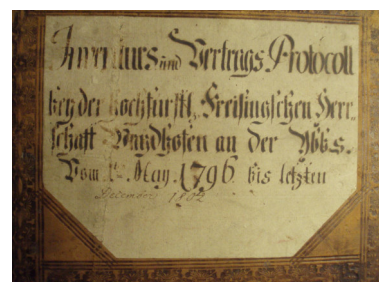 Inventurs und Vertrags Protocoll
bey der hochfürstl. Freisingischen Herr-
schafft Waydhofen an der Ybbs.
Vom 1ten May. 1796 bis letzten
Decembris 1802